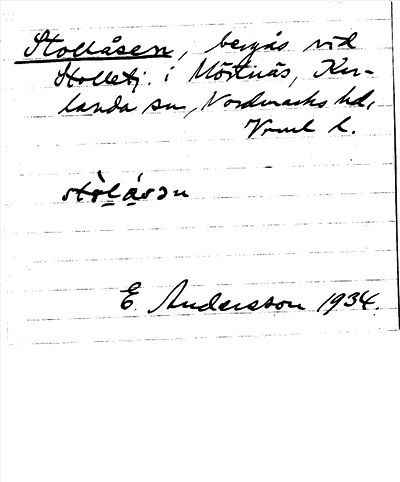 Stollåsen, bergås vid
Stolletj. i Mörtnäs, Kar-
landa sn, Nordmarks hd,
Vrml l.
stò̠lå̠sən
E. Andersson 1934.